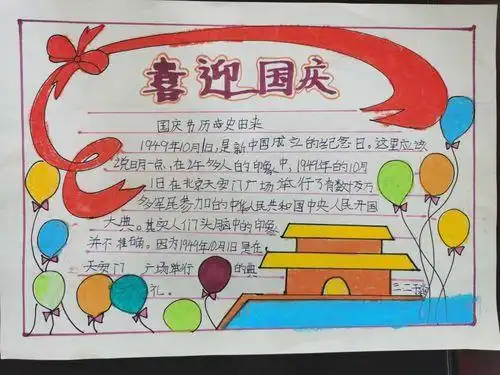 喜迎国庆
国庆节历史由来
1949年10月1日,是新中国成立的纪念日。这里应该
说明一点,在许多人的印象中,1949年的10月
1日在北京天安门广场举行了有数十万
多军民参加的中华人民共和国中央人民开国
大典。其实人们头脑中的印象
并不准确。因为1949年10月1日是在
天安门 广场举行 的典
礼。
三二